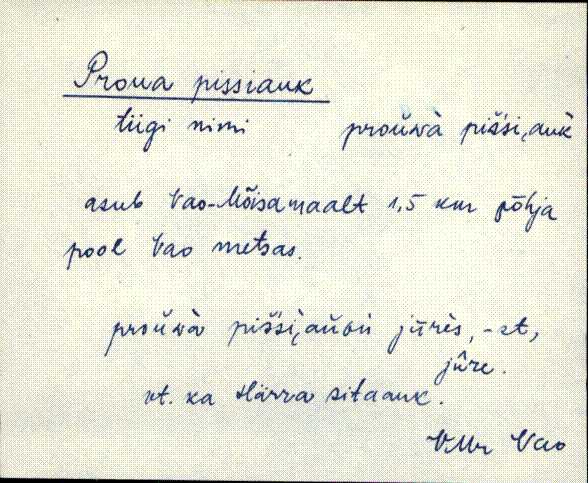 Proua pissiauk
tiigi nimi proùwà pišśi,auk
asub Vao-Mõisamaalt 1,5 km põhja
pool Vao metsas.
jūrès, -st,
jûre.
vt. ka Härra sitaauk.
VMr Vao